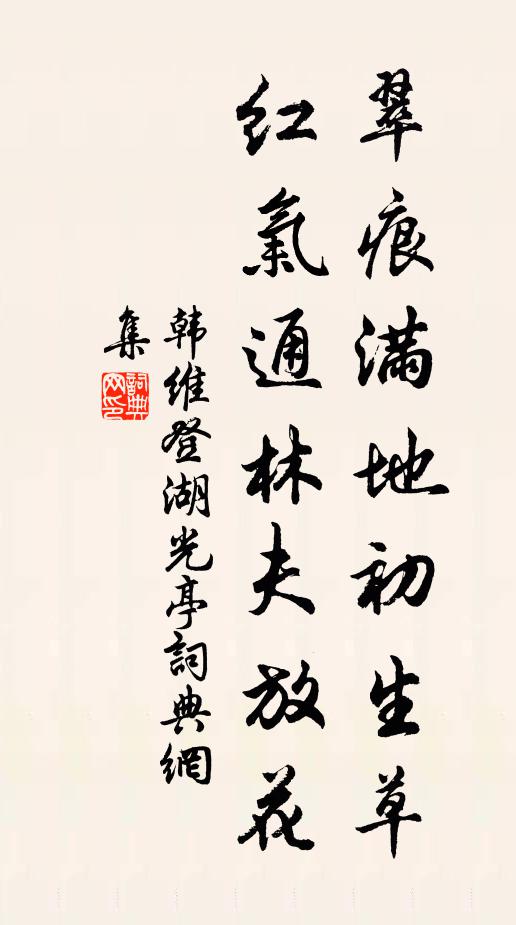 翠痕滿地初生草
紅氣通林夫放花
韩維登湖光亭詞典網
集
詞典
网印